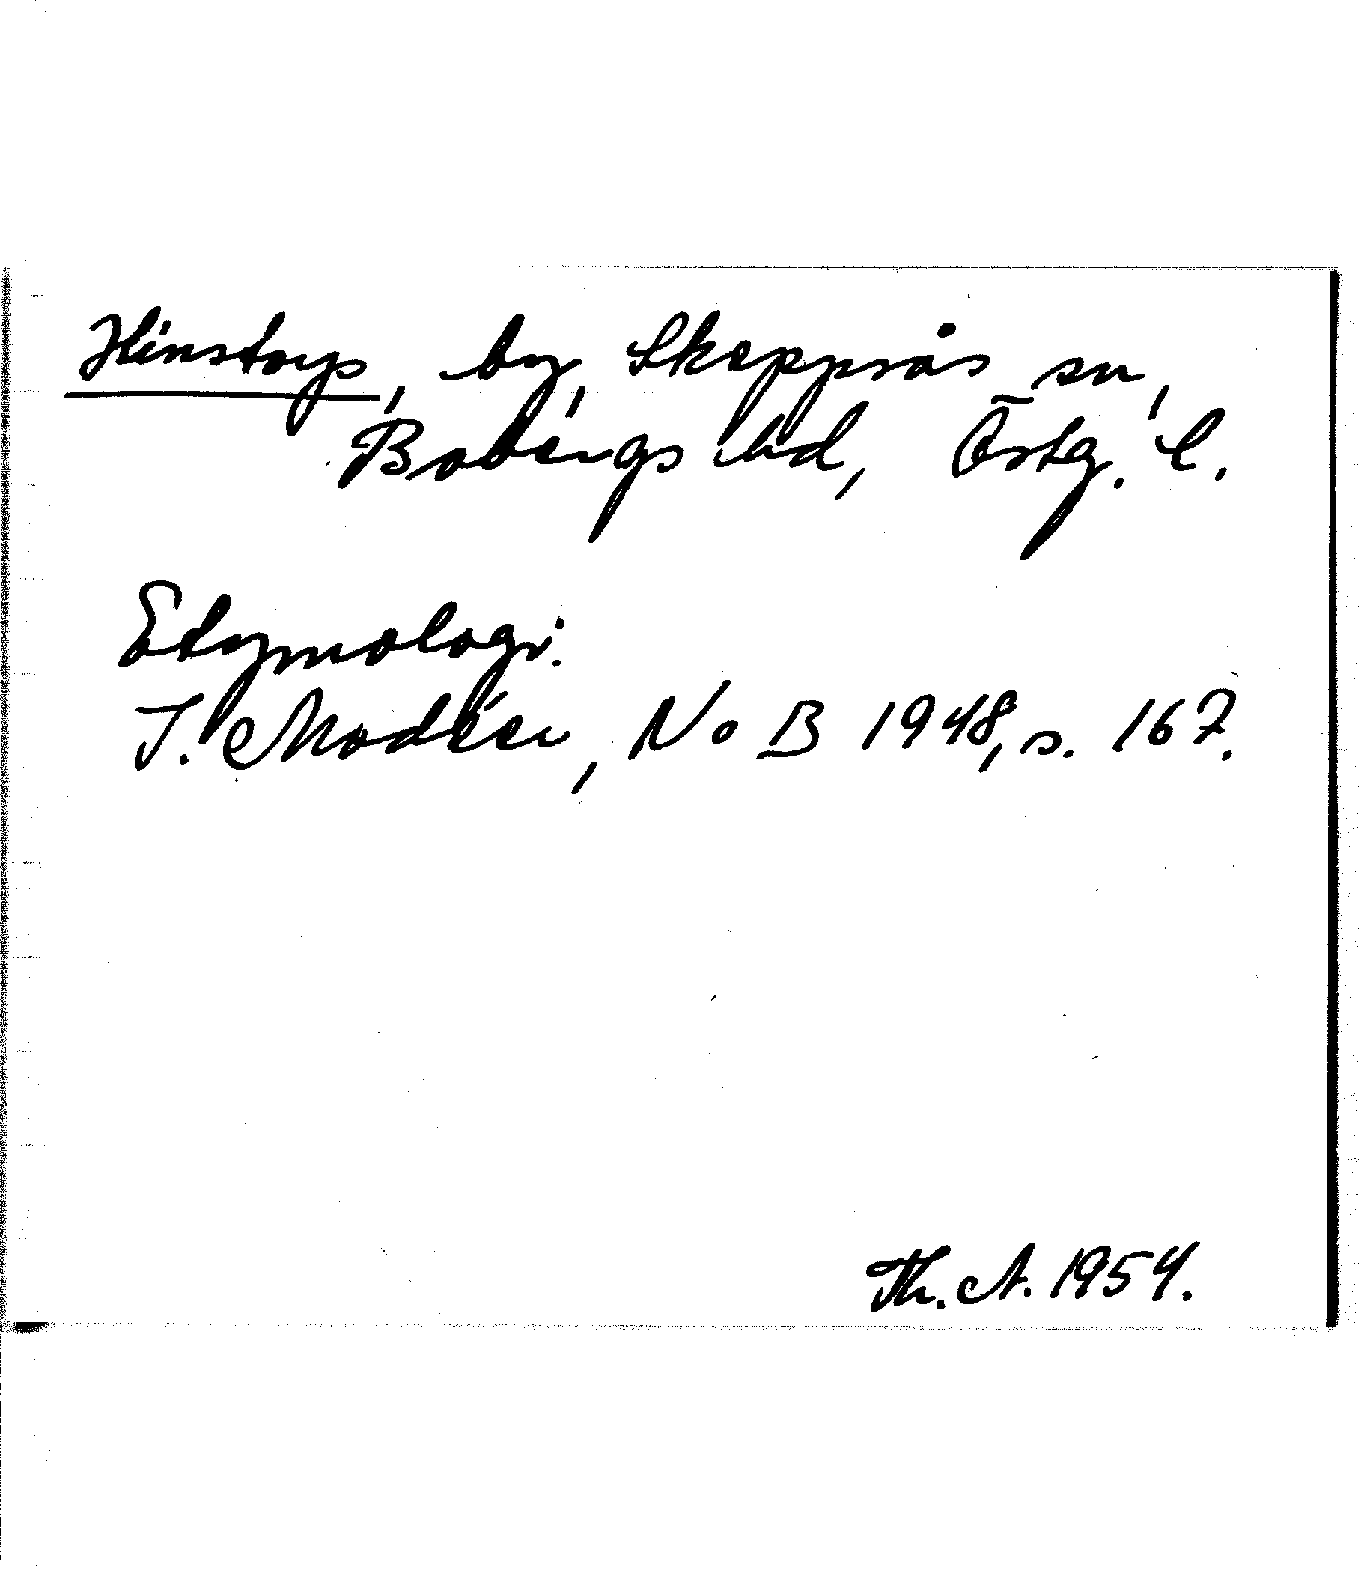 Hinstorp, by, Skeppsås sn,
Bobergs hd, Östg. l.
Etymologi:
I. Modéer, No B 1948, s. 167.
Th. A. 1954.